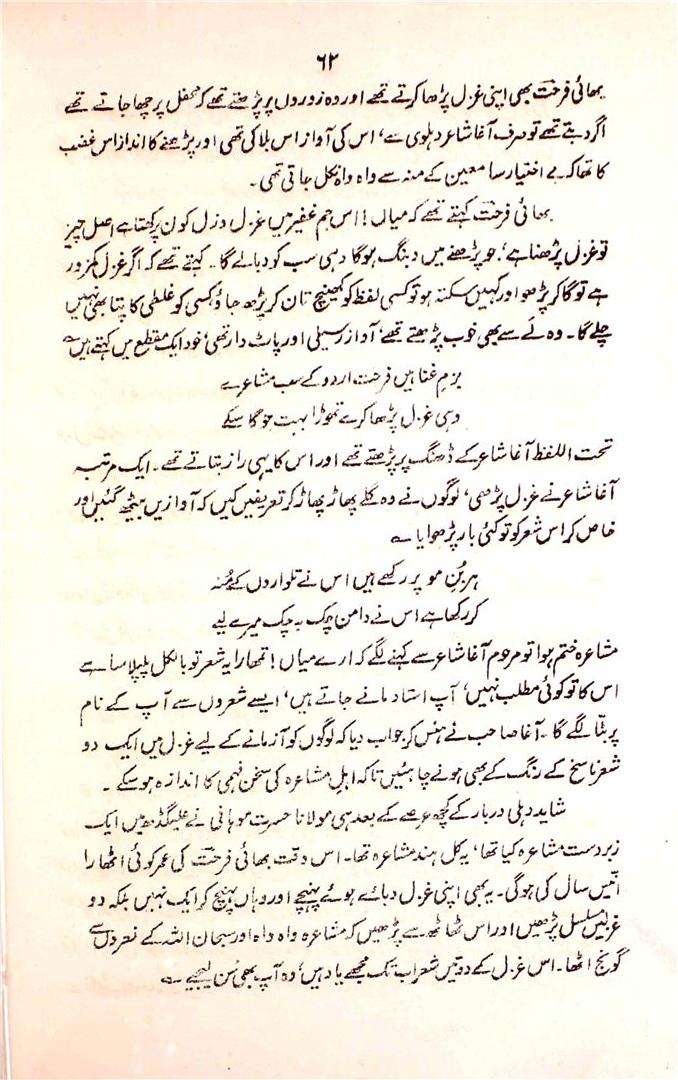 ۶۲
بھائی فرحت بھی اپنی غزل پڑھا کرتے تھے اور وہ زوروں پر پڑھتے تھے کہ محفل پر چھا جاتے تھے
اگر دبتے تھے تو صرف آغا شاعر دہلوی سے، اس کی آواز اس بلا کی تھی اور پڑھنے کا انداز اس غضب
کا تھا کہ بے اختیار سامعین کے منہ سے واہ واہ نکل جاتی تھی۔
بھائی فرحت کہتے تھے کہ میاں! اس جم غفیر میں غزل وزل کون پرکھتا ہے اصل چیز
تو غزل پڑھنا ہے، جو پڑھنے میں دبنگ ہوگا وہی سب کو دبا لے گا۔ کہتے تھے کہ اگر غزل کمزور
ہے تو گا کر پڑھو اور کہیں سکتہ ہو تو کسی لفظ کو کھینچ تان کر پڑھ جاؤ کسی کو غلطی کا پتا بھی نہیں
چلے گا۔ وہ لَے سے بھی خوب پڑھتے تھے، آواز رسیلی اور پاٹ دار تھی، خود ایک مقطع میں کہتے ہیں ؎
بزمِ غنا ہیں فرحت اردو کے سب مشاعرے
وہی غزل پڑھا کرے تھوڑا بہت جو گا سکے
تحت اللفظ آغا شاعر کے ڈھنگ پر پڑھتے تھے اور اس کا یہی راز بتاتے تھے۔ ایک مرتبہ
آغا شاعر نے غزل پڑھی، لوگوں نے وہ گلے پھاڑ پھاڑ کر تعریفیں کیں کہ آوازیں بیٹھ گئیں اور
خاص کر اس شعر کو تو کئی بار پڑھوایا ؎
ہر بُنِ مو پر رکھے ہیں اس نے تلواروں کے مُنہ
کر رکھا ہے اس نے دامن چک بہ چک میرے لیے
مشاعرہ ختم ہوا تو مرحوم آغا شاعر سے کہنے لگے کہ ارے میاں! تمھارا یہ شعر تو بالکل پلپلا سا ہے
اس کا تو کوئی مطلب نہیں، آپ استاد مانے جاتے ہیں، ایسے شعروں سے آپ کے نام
پر بٹّا لگے گا۔ آغا صاحب نے ہنس کر جواب دیا کہ لوگوں کو آزمانے کے لیے غزل میں ایک دو
شعر ناسخ کے رنگ کے بھی ہونے چاہئیں تاکہ اہلِ مشاعرہ کی سخن فہمی کا اندازہ ہو سکے۔
شاید دہلی دربار کے کچھ عرصے کے بعد ہی مولانا حسرت موہانی نے علیگڈھ میں ایک
زبردست مشاعرہ کیا تھا، یہ کل ہند مشاعرہ تھا۔ اس وقت بھائی فرحت کی عمر کوئی اٹھارا
انیس سال کی ہوگی۔ یہ بھی اپنی غزل دبائے ہوئے پہنچے اور وہاں پہنچ کر ایک نہیں بلکہ دو
غزلیں مسلسل پڑھیں اور اس ٹھاٹھ سے پڑھیں کہ مشاعرہ واہ واہ اور سبحان اللہ کے نعروں سے
گونج اٹھا۔ اس غزل کے دو تین شعر اب تک مجھے یاد ہیں، وہ آپ بھی سُن لیجیے ؎